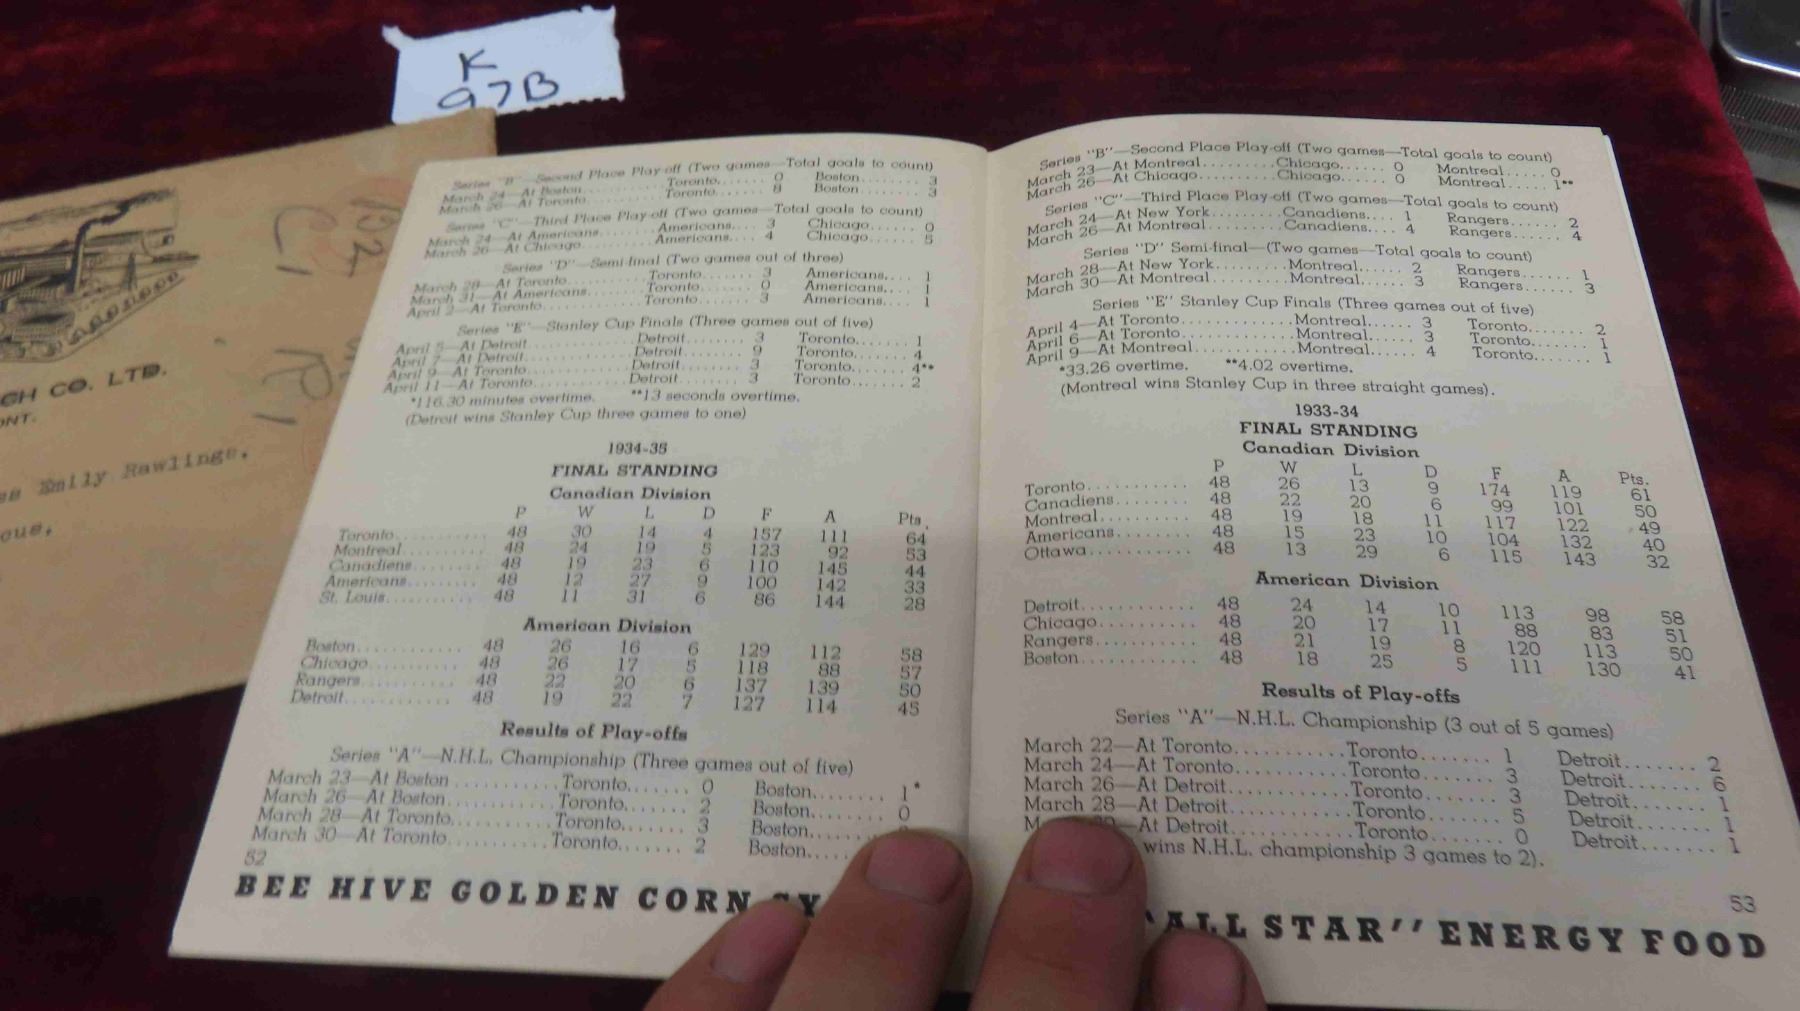 K
97B
GH CO. LTD.
ONT.
Emily Rawlings,
Series "B"—Second Place Play-off (Two games—Total goals to count)
March 24—At Boston............Toronto....... 0 Boston........ 3
March 26—At Toronto............Toronto....... 8 Boston........ 3
Series "C"—Third Place Play-off (Two games—Total goals to count)
March 24—At Americans..........Americans.... 3 Chicago....... 0
March 26—At Chicago............Americans.... 4 Chicago....... 5
Series "D"—Semi-final (Two games out of three)
March 28—At Toronto............Toronto....... 3 Americans.... 1
March 31—At Americans..........Toronto....... 0 Americans.... 1
April 2—At Toronto.............Toronto....... 3 Americans.... 1
Series "E"—Stanley Cup Finals (Three games out of five)
April 5—At Detroit.............Detroit....... 3 Toronto....... 1
April 7—At Detroit.............Detroit....... 9 Toronto....... 4
April 9—At Toronto.............Detroit....... 3 Toronto....... 4**
April 11—At Toronto............Detroit....... 3 Toronto....... 2
*116.30 minutes overtime. **13 seconds overtime.
(Detroit wins Stanley Cup three games to one)
1934-35
FINAL STANDING
Canadian Division
P W L D F A Pts.
Toronto........... 48 30 14 4 157 111 64
Montreal.......... 48 24 19 5 123 92 53
Canadiens......... 48 19 23 6 110 145 44
Americans......... 48 12 27 9 100 142 33
St. Louis......... 48 11 31 6 86 144 28
American Division
Boston............ 48 26 16 6 129 112 58
Chicago........... 48 26 17 5 118 88 57
Rangers........... 48 22 20 6 137 139 50
Detroit........... 48 19 22 7 127 114 45
Results of Play-offs
Series "A"—N.H.L. Championship (Three games out of five)
March 23—At Boston...........Toronto....... 0 Boston........ 1*
March 26—At Boston...........Toronto....... 2 Boston........ 0
March 28—At Toronto..........Toronto....... 3 Boston......
March 30—At Toronto..........Toronto....... 2 Boston.....
52
BEE HIVE GOLDEN CORN SY
Series "B"—Second Place Play-off (Two games—Total goals to count)
March 23—At Montreal.........Chicago....... 0 Montreal..... 0
March 26—At Chicago..........Chicago....... 0 Montreal..... 1**
Series "C"—Third Place Play-off (Two games—Total goals to count)
March 24—At New York.........Canadiens.... 1 Rangers...... 2
March 26—At Montreal.........Canadiens.... 4 Rangers...... 4
Series "D" Semi-final—(Two games—Total goals to count)
March 28—At New York.........Montreal...... 2 Rangers...... 1
March 30—At Montreal.........Montreal...... 3 Rangers...... 3
Series "E" Stanley Cup Finals (Three games out of five)
April 4—At Toronto.............Montreal...... 3 Toronto....... 2
April 6—At Toronto.............Montreal...... 3 Toronto....... 1
April 9—At Montreal............Montreal...... 4 Toronto....... 1
*33.26 overtime. **4.02 overtime.
(Montreal wins Stanley Cup in three straight games).
1933-34
FINAL STANDING
Canadian Division
P W L D F A Pts.
Toronto........... 48 26 13 9 174 119 61
Canadiens......... 48 22 20 6 99 101 50
Montreal.......... 48 19 18 11 117 122 49
Americans......... 48 15 23 10 104 132 40
Ottawa............ 48 13 29 6 115 143 32
American Division
Detroit........... 48 24 14 10 113 98 58
Chicago........... 48 20 17 11 88 83 51
Rangers........... 48 21 19 8 120 113 50
Boston............ 48 18 25 5 111 130 41
Results of Play-offs
Series "A"—N.H.L. Championship (3 out of 5 games)
March 22—At Toronto..........Toronto....... 1 Detroit....... 2
March 24—At Toronto..........Toronto....... 3 Detroit....... 6
March 26—At Detroit..........Toronto....... 3 Detroit....... 1
March 28—At Detroit..........Toronto....... 5 Detroit....... 1
At Detroit..........Toronto....... 0 Detroit....... 1
wins N.H.L. championship 3 games to 2).
53
"ALL STAR" ENERGY FOOD